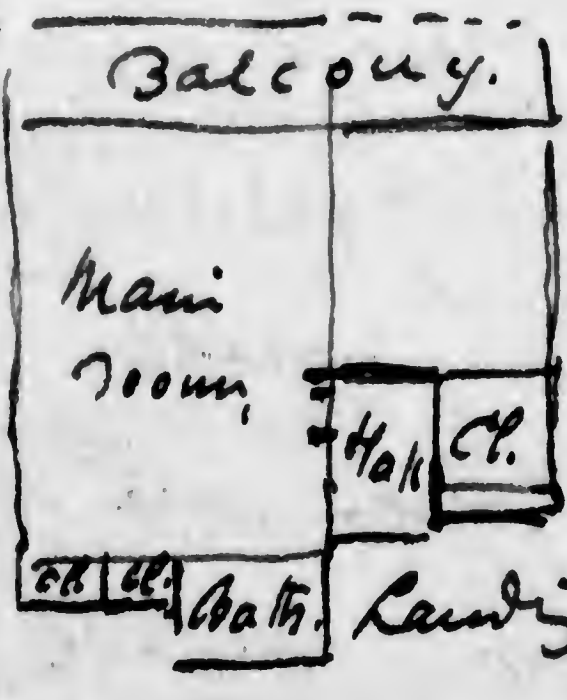 Balcony.
Main
room,
Hall
Cl.
Cl.
Cl.
Bath.
Landing